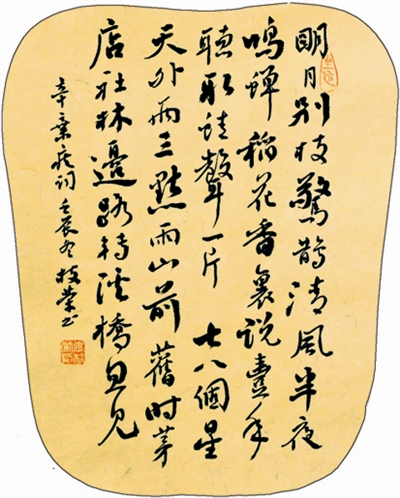 明月别枝驚鵲清風半夜
鳴蟬稻花香裏説豐年
聽取蛙聲一片 七八個星
天外兩三點雨山前 舊時茅
店社林邊路轉溪橋忽見
辛棄疾詞壬辰冬枝榮书